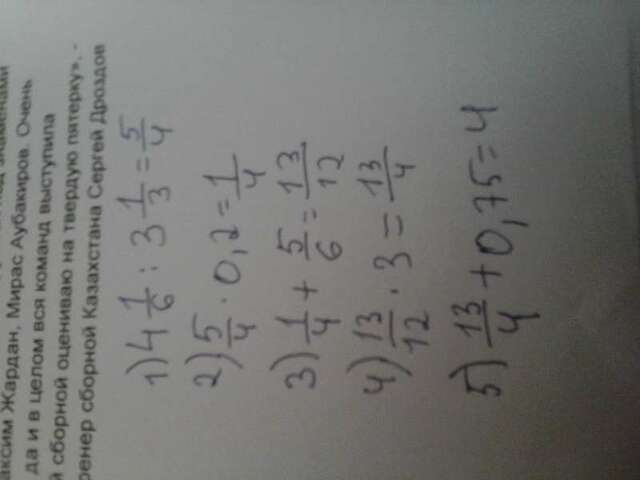 аксим Жардан, Мирас Аубакиров. Очень
да и в целом вся команд выступила
й сборной оцениваю на твердую пятерку», -
ренер сборной Казахстана Сергей Дроздов
1) 4 1/6 : 3 1/3 = 5/4
2) 5/4 · 0,2 = 1/4
3) 1/4 + 5/6 = 13/12
4) 13/12 · 3 = 13/4
5) 13/4 + 0,75 = 4